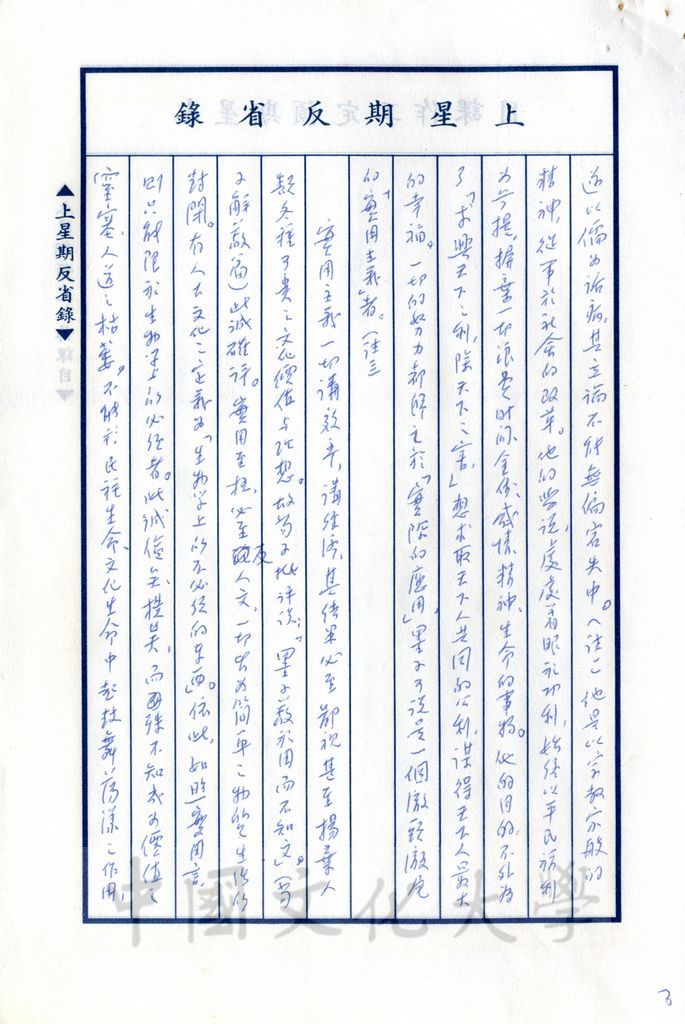 上星期反省錄
遂以儒為詬病，其立論不能無偏宕失中。（註二他是以宗教家般的
精神，從事於社會的改革。他的學說，處處著眼於功利，始終以平民福利
為前提，摒棄一切浪費時間、金錢、感情、精神、生命的事物。他的目的，不外為
了「求興天下之利，除天下之害，」想求取天下人共同的公利，謀得天下人最大
的幸福。一切的努力都歸之於「實際的應用」，墨子可說是一個徹頭徹尾
的「實用主義」者。（註三
實用主義一切講效率，講經濟，其結果必至鄙視甚至揚棄人
類各種可貴之文化價值與理想。故荀子批評說：「墨子蔽於用而不知文」。（荀
子解蔽篇）此誠確評。實用至極，必至反人文，一切出為簡單之物的生活所
封閉。有人不文化之定義為「生物學上的不必須的東西」。依此，如照實用言，
則只能限於生物學上的必須者。此誠儉矣，樸矣，而殊不知或為價值之
窒塞、人道之枯萎。不能於民族生命、文化生命中起鼓舞蕩漾之作用，
▲上星期反省錄▼
中國文化大學
3